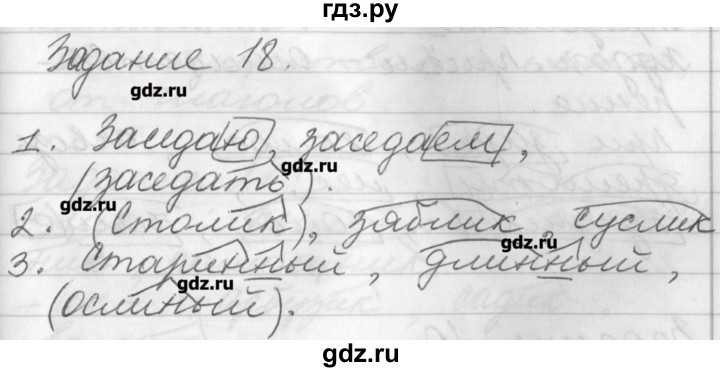 гдз.ру
Задание 18.
gdz.ru
1. Заседаю, заседаем,
gdz.ru
(заседать).
gdz.ru
2. (Столик), зяблик, суслик
gdz.ru
3. Старинный, длинный,
gdz.ru
(ослиный).
gdz.ru